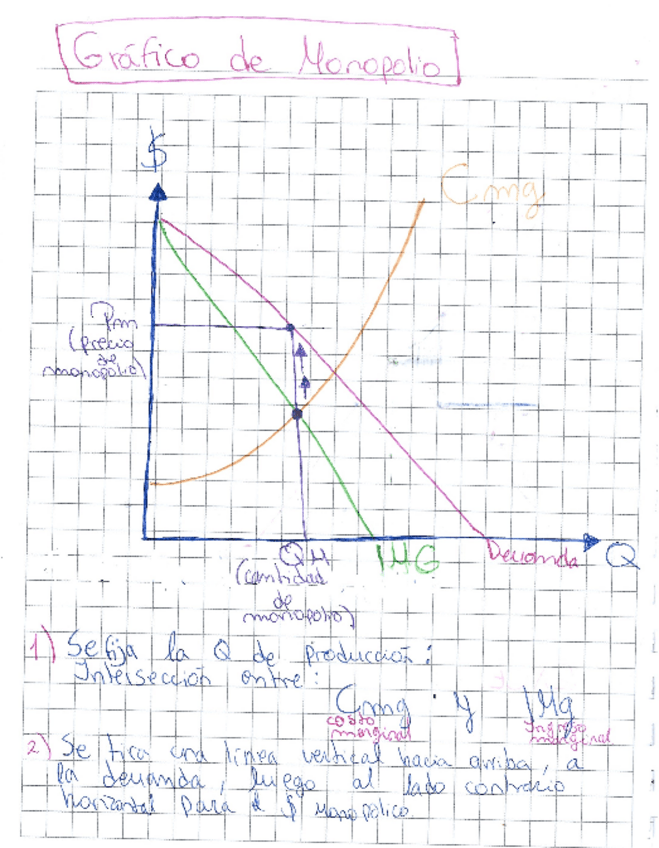 Gráfico de Monopolio
$
Cmg
Pm
(precio
de
monopolio)
QM
(cantidad
de
monopolio)
IMG
Demanda
Q
1) Se fija la Q de producción:
Intersección entre:
Cmg y IMg
costo
marginal
Ingreso
marginal
2) Se tira una línea vertical hacia arriba, a
la demanda, luego al lado contrario
horizontal para el $ Monopólico.